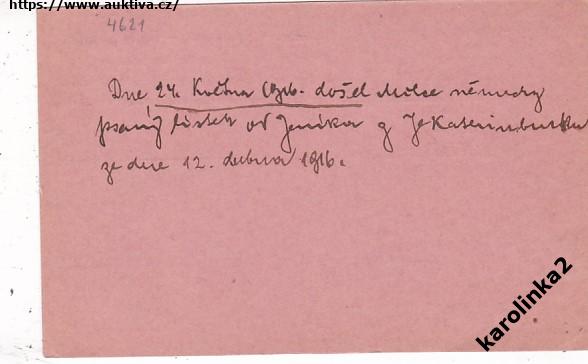 https://www.auktiva.cz/
4621
Dne 24. Května 1916. došel Milce německy
psaný lístek od Jeníka z Jekaterinburku
ze dne 12. dubna 1916.
karolinka2